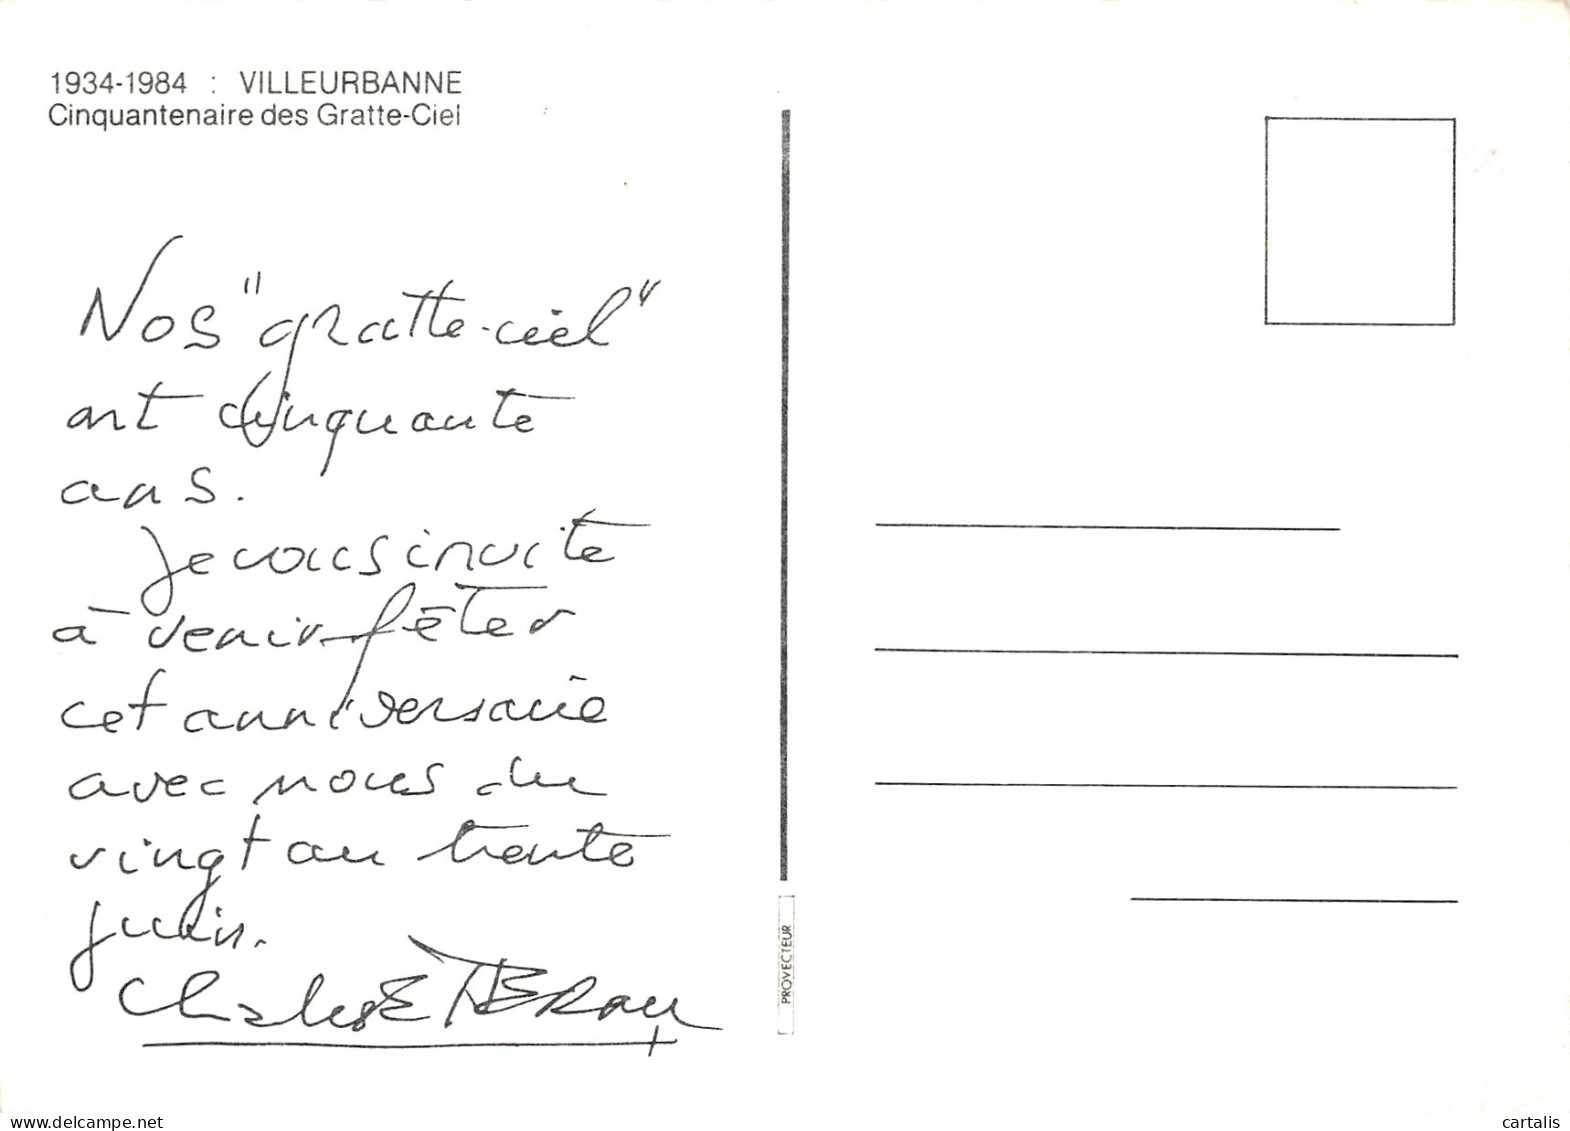 1934-1984 : VILLEURBANNE
Cinquantenaire des Gratte-Ciel
Nos "gratte-ciel"
ont cinquante
ans.
Je vous invite
à venir fêter
cet anniversaire
avec nous du
vingt au trente
juin.
Charles HERNU
PROVECTEUR
delcampe.net
cartalis